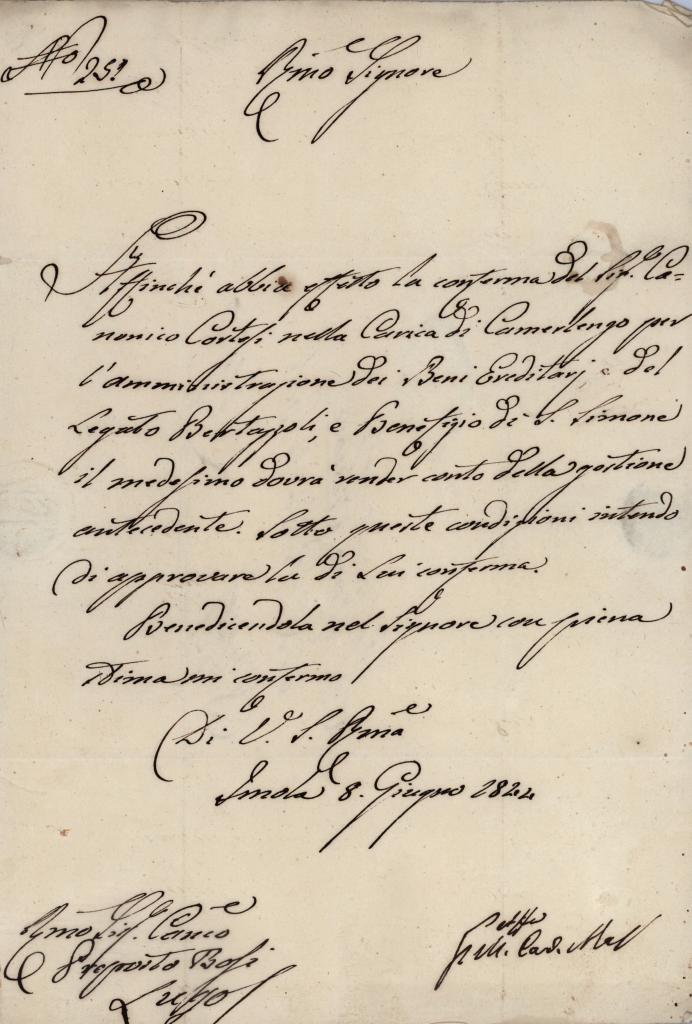 No 251
Rmo Signore
Affinchè abbia effetto la conferma del Sig. Ca-
nonico Cortesi nella Carica di Camerlengo per
l'amministrazione dei Beni Ereditarj, e del
Legato Bertazzoli, e Benefizio di S. Simone
il medesimo dovrà render conto della gestione
antecedente. Sotto queste condizioni intendo
di approvare la di Lui conferma.
Benedicendola nel Signore con piena
stima mi confermo
Di V. S. Rma
Imola 8. Giugno 1844
Rmo Sig. Canco
Proposto Bosi
Lugo
G. M. Card.